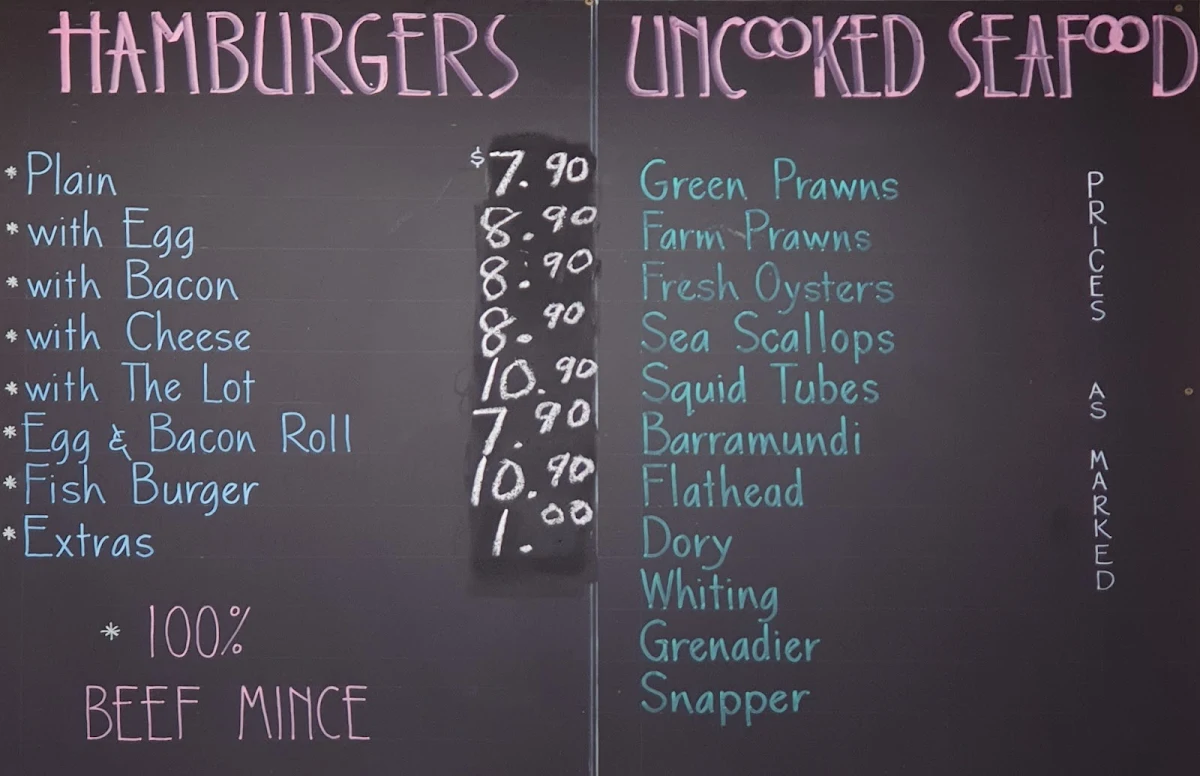 HAMBURGERS
* Plain $7.90
* with Egg 8.90
* with Bacon 8.90
* with Cheese 8.90
* with The Lot 10.90
* Egg & Bacon Roll 7.90
* Fish Burger 10.90
* Extras 1.00
* 100%
BEEF MINCE
UNCOOKED SEAFOOD
Green Prawns
Farm Prawns
Fresh Oysters
Sea Scallops
Squid Tubes
Barramundi
Flathead
Dory
Whiting
Grenadier
Snapper
PRICES AS MARKED